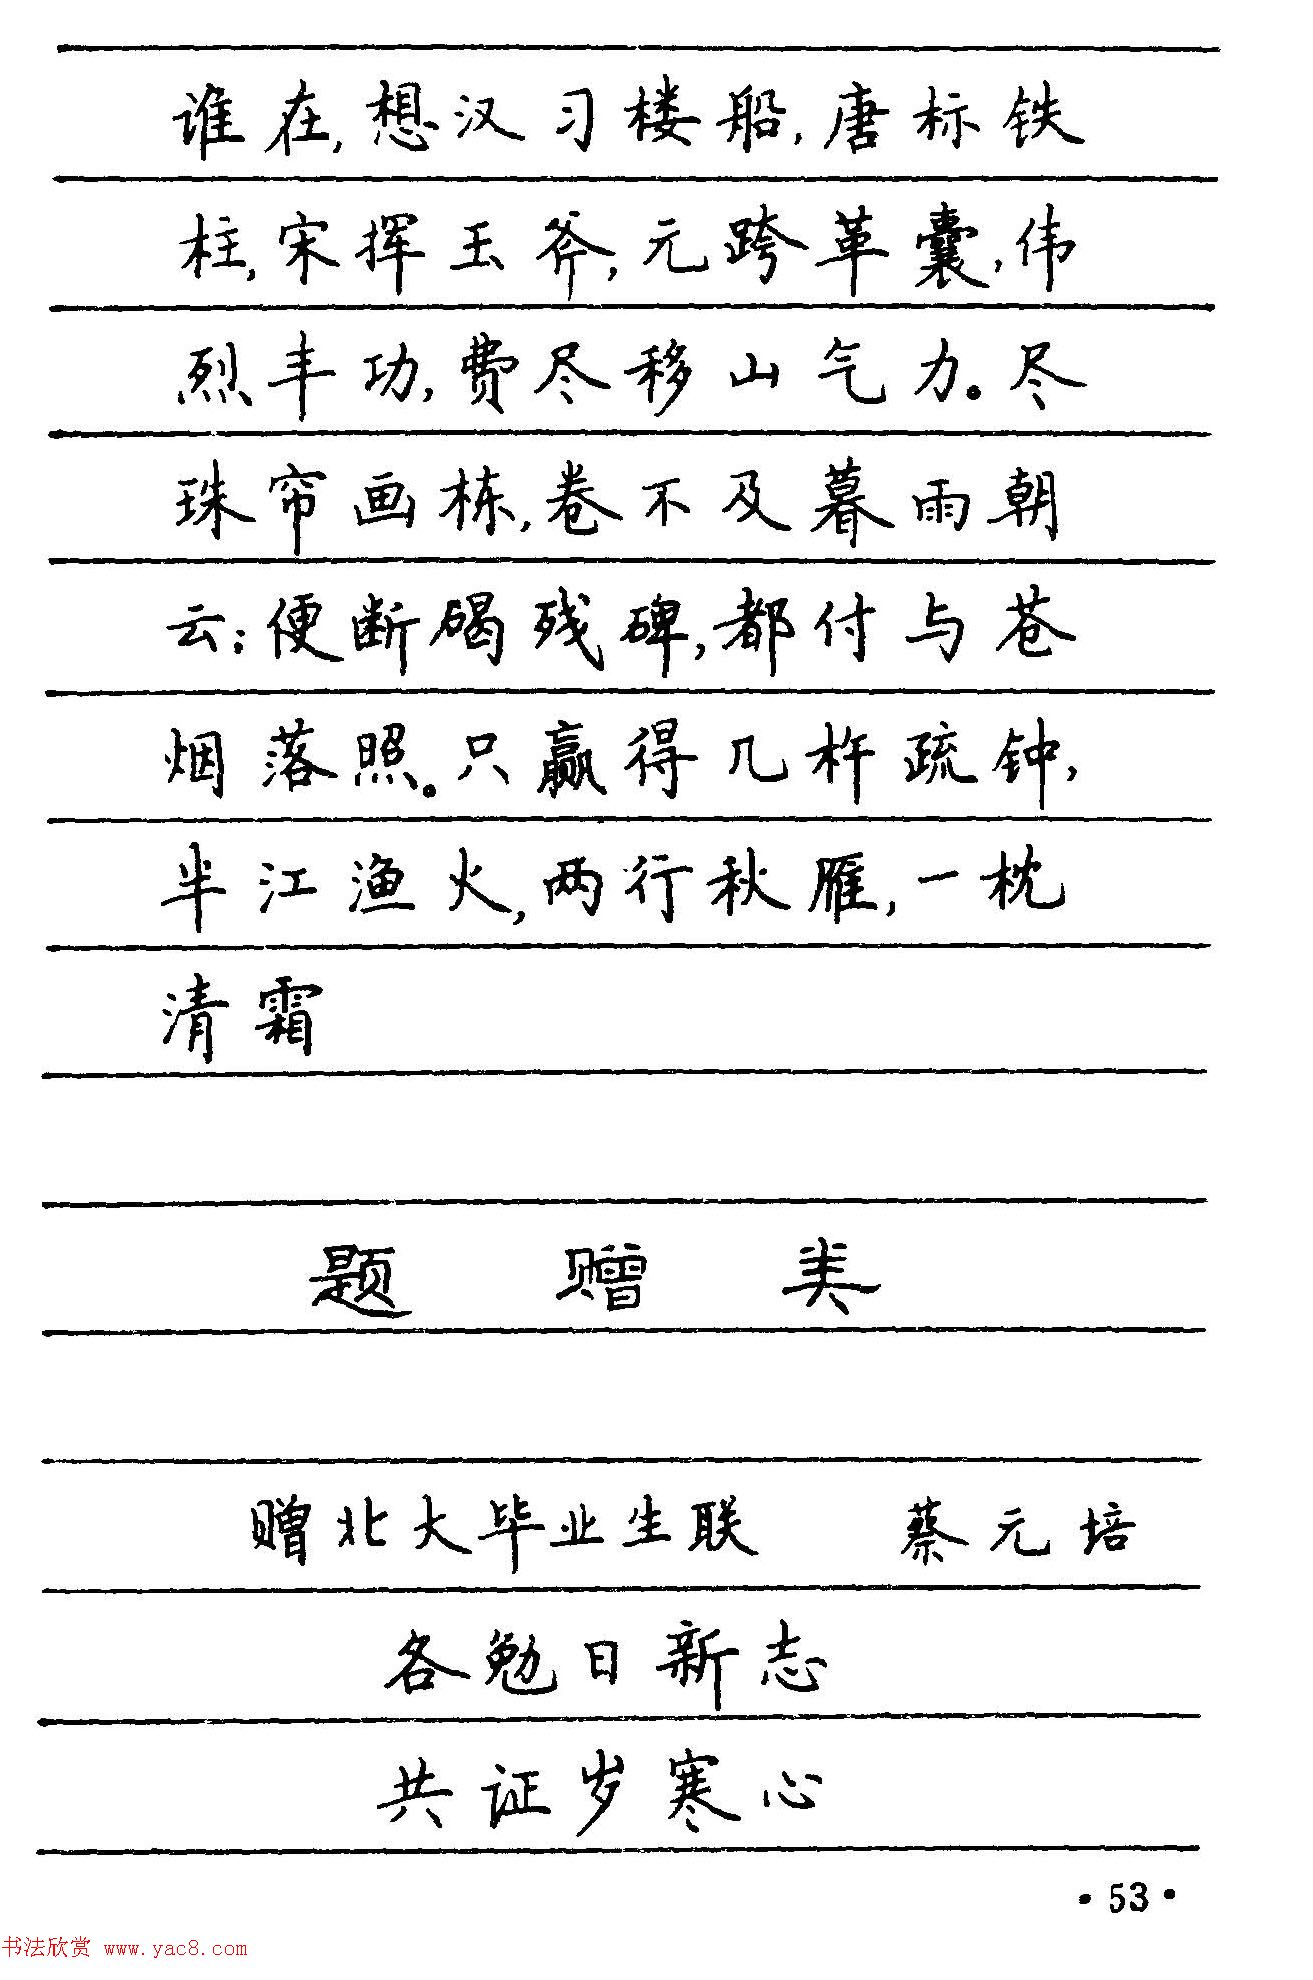 谁在,想汉习楼船,唐标铁
柱,宋挥玉斧,元跨革囊,伟
烈丰功,费尽移山气力。尽
珠帘画栋,卷不及暮雨朝
云;便断碣残碑,都付与苍
烟落照。只赢得几杵疏钟,
半江渔火,两行秋雁,一枕
清霜
题 赠 类
赠北大毕业生联 蔡元培
各勉日新志
共证岁寒心
·53·
书法欣赏 www.yac8.com